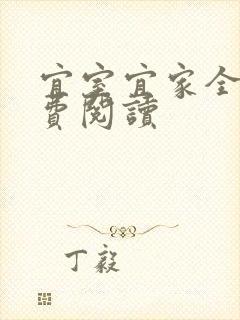 宜室宜家全
費閱讀
丁毅